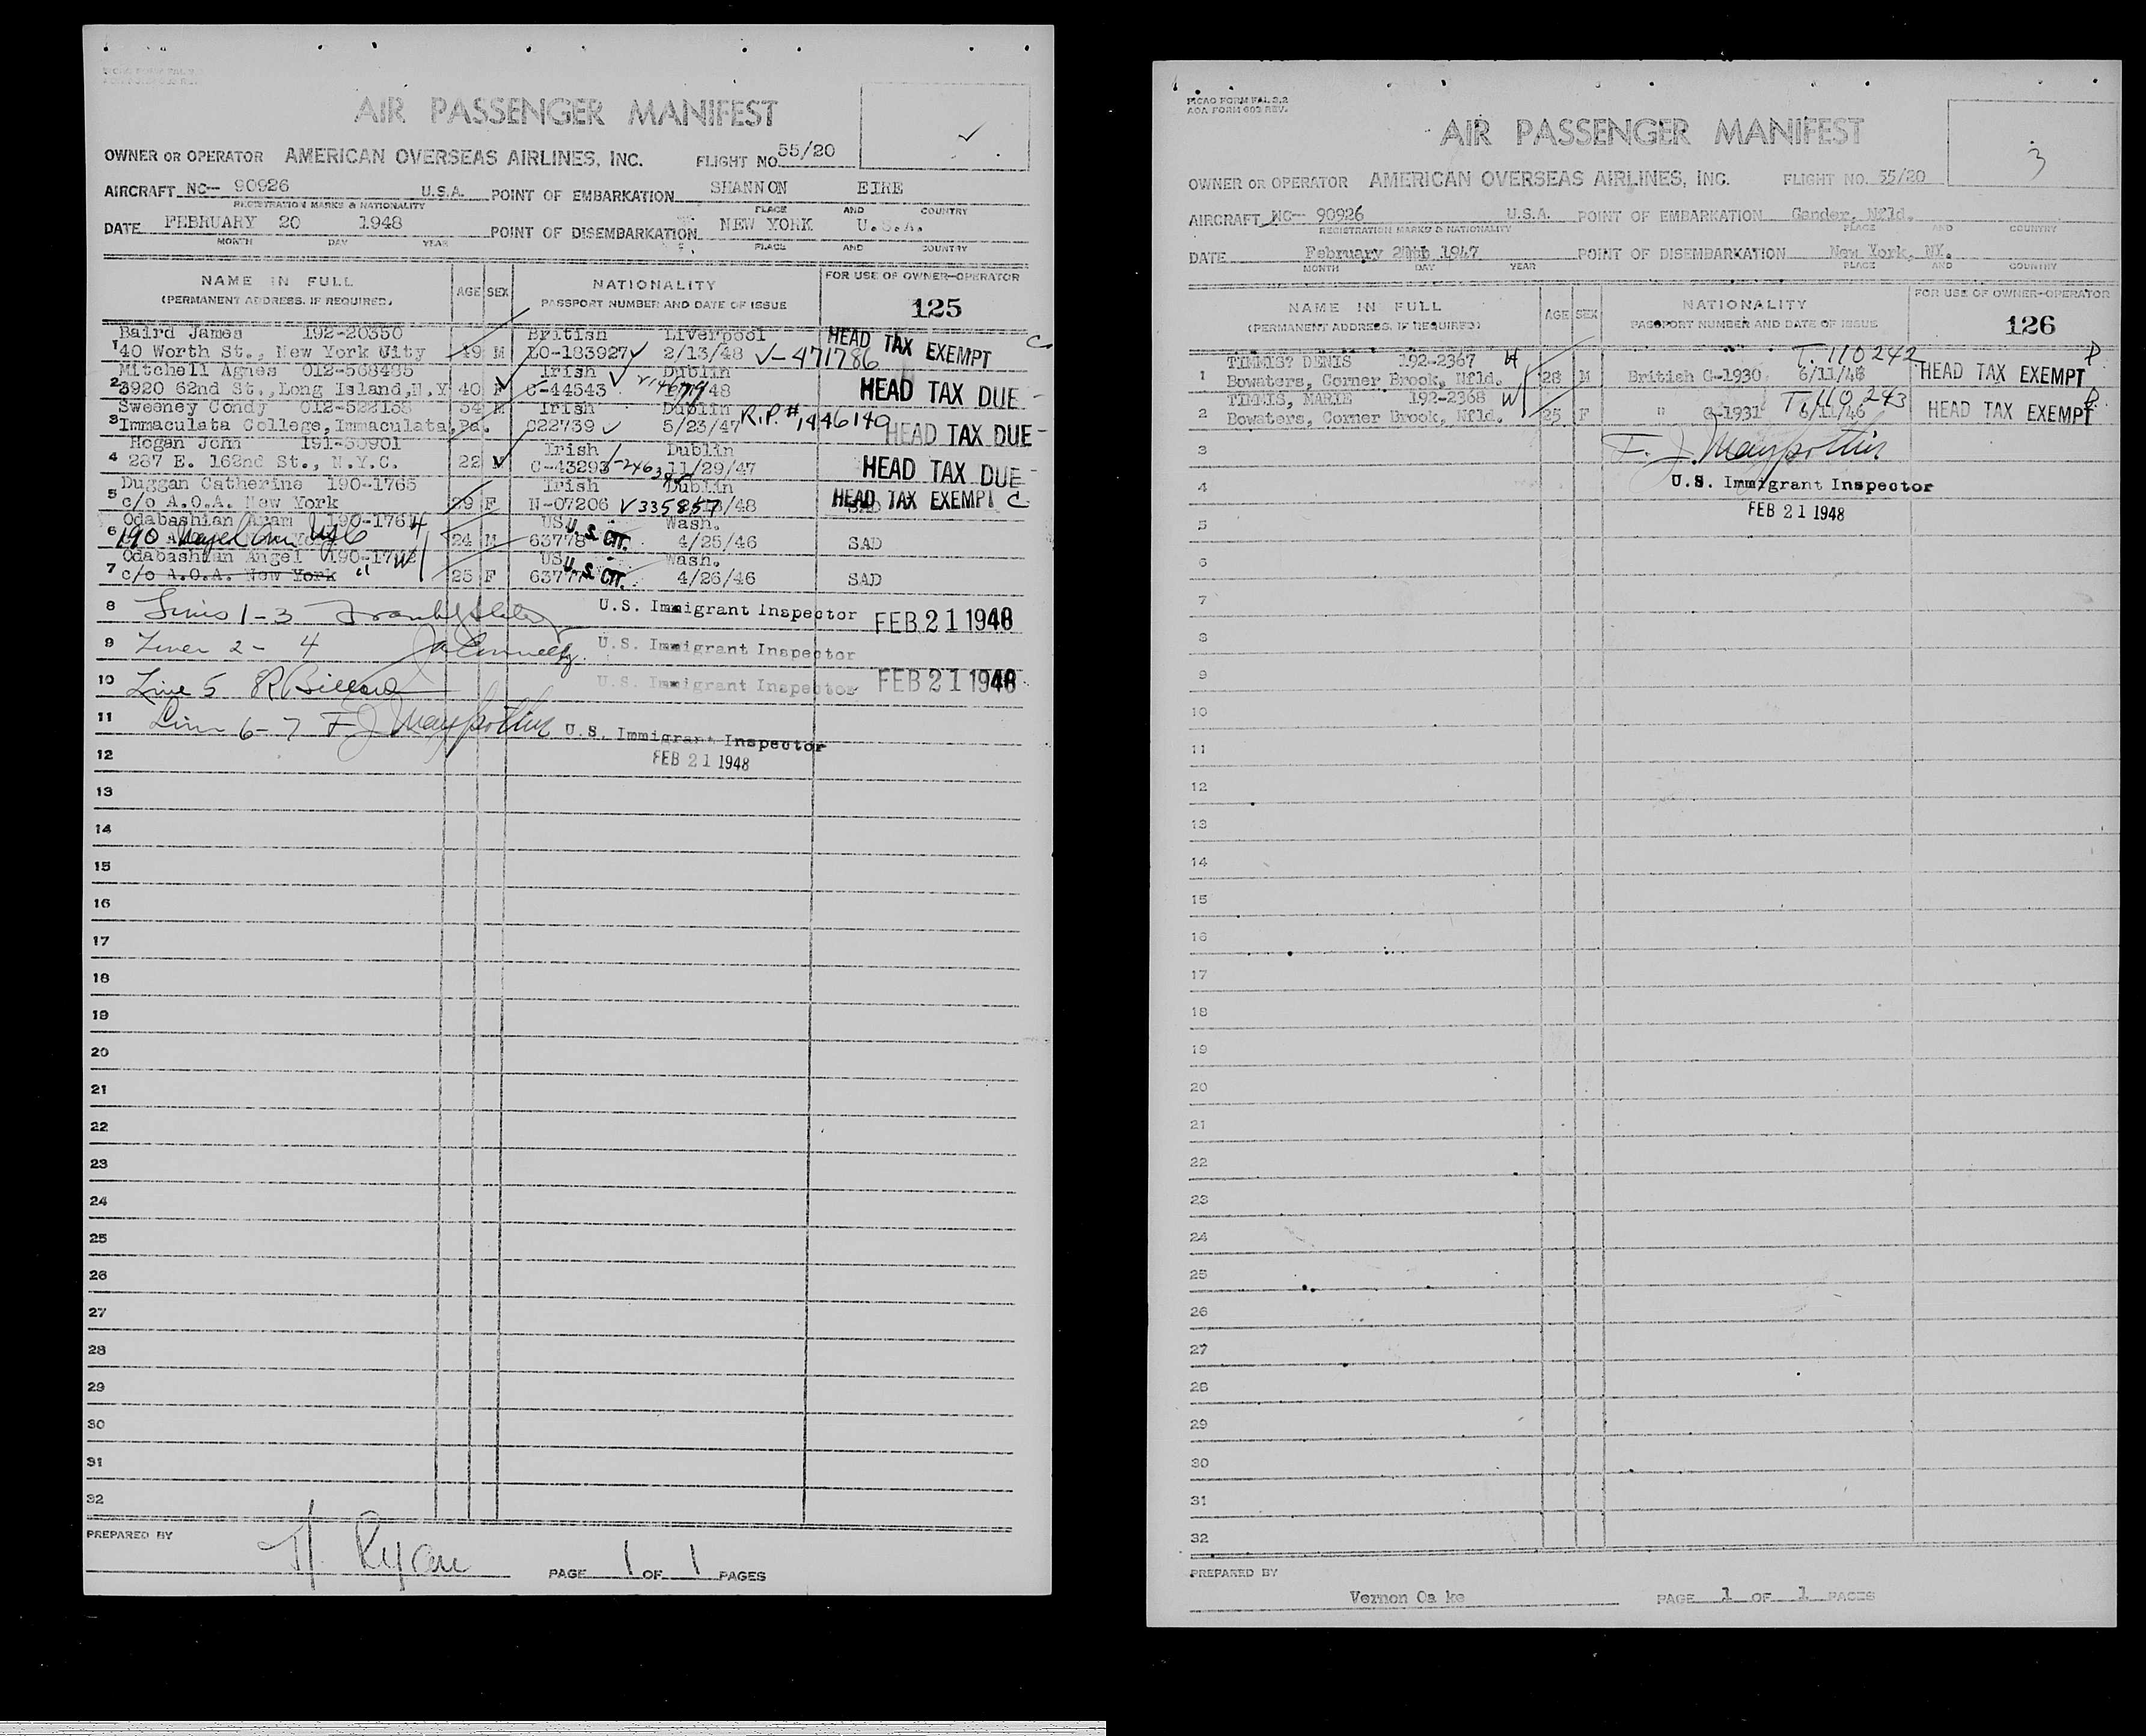 AIR PASSENGER MANIFEST
OWNER OR OPERATOR AMERICAN OVERSEAS AIRLINES, INC. FLIGHT NO. 55/20
AIRCRAFT NC-- 90926 U.S.A. POINT OF EMBARKATION SHANNON EIRE
REGISTRATION MARKS & NATIONALITY PLACE AND COUNTRY
DATE FEBRUARY 20 1948 POINT OF DISEMBARKATION NEW YORK U.S.A.
MONTH DAY YEAR PLACE AND COUNTRY
NAME IN FULL
(PERMANENT ADDRESS, IF REQUIRED)
AGE SEX
NATIONALITY
PASSPORT NUMBER AND DATE OF ISSUE
FOR USE OF OWNER-OPERATOR
125
Baird James 192-20350 British Liverpool HEAD TAX EXEMPT C
1 40 Worth St., New York City 49 M LO-183927 2/13/48 V-471786
Mitchell Agnes 012-568485 Irish Dublin
2 3920 62nd St., Long Island, N.Y. 40 F C-44543 48 HEAD TAX DUE -
Sweeney Condy 012-522158 34 M Irish Dublin R.P.# 1446140
3 Immaculata College, Immaculata, Pa. C22739 5/23/47 HEAD TAX DUE -
Hogan John 191-50901 Irish Dublin
4 287 E. 162nd St., N.Y.C. 22 M C-43293 11/29/47 HEAD TAX DUE -
Duggan Catherine 190-1765 Irish Dublin
5 c/o A.O.A. New York 29 F N-07206 V335857 /48 HEAD TAX EXEMPT C
Odabashian Aram 190-1761 H US Wash.
6 190 24 M 63778 U.S. CIT. 4/25/46 SAD
Odabashian Angel 190-1762 W US Wash.
7 c/o A.O.A. New York " 25 F 6377 U.S. CIT. 4/26/46 SAD
8 Lines 1-3 U.S. Immigrant Inspector FEB 21 1948
9 Lines 2-4 U.S. Immigrant Inspector
10 Line 5 R Billard U.S. Immigrant Inspector FEB 21 1948
11 Lines 6-7 F. J. U.S. Immigrant Inspector
12 FEB 21 1948
13
14
15
16
17
18
19
20
21
22
23
24
25
26
27
28
29
30
31
32
PREPARED BY
Ryan PAGE 1 OF 1 PAGES
PICAO FORM FAL 2.2
AOA FORM 603 REV.
AIR PASSENGER MANIFEST
3
OWNER OR OPERATOR AMERICAN OVERSEAS AIRLINES, INC. FLIGHT NO. 55/20
AIRCRAFT NC-- 90926 U.S.A. POINT OF EMBARKATION Gander, Nfld.
REGISTRATION MARKS & NATIONALITY PLACE AND COUNTRY
DATE February 1947 POINT OF DISEMBARKATION New York, NY.
MONTH DAY YEAR PLACE AND COUNTRY
NAME IN FULL
(PERMANENT ADDRESS, IF REQUIRED)
AGE SEX
NATIONALITY
PASSPORT NUMBER AND DATE OF ISSUE
FOR USE OF OWNER-OPERATOR
126
TIMMIS? DENIS 192-2367 H T. 110242 P
1 Bowaters, Corner Brook, Nfld. 28 M British G-1930 6/11/46 HEAD TAX EXEMPT
TIMMIS, MARIE 192-2368 W T 110243 P
2 Bowaters, Corner Brook, Nfld. 25 F " G-1931 6/11/46 HEAD TAX EXEMPT
3 F. J.
4 U.S. Immigrant Inspector
FEB 21 1948
5
6
7
8
9
10
11
12
13
14
15
16
17
18
19
20
21
22
23
24
25
26
27
28
29
30
31
32
PREPARED BY
Vernon Oa ke PAGE 1 OF 1 PAGES